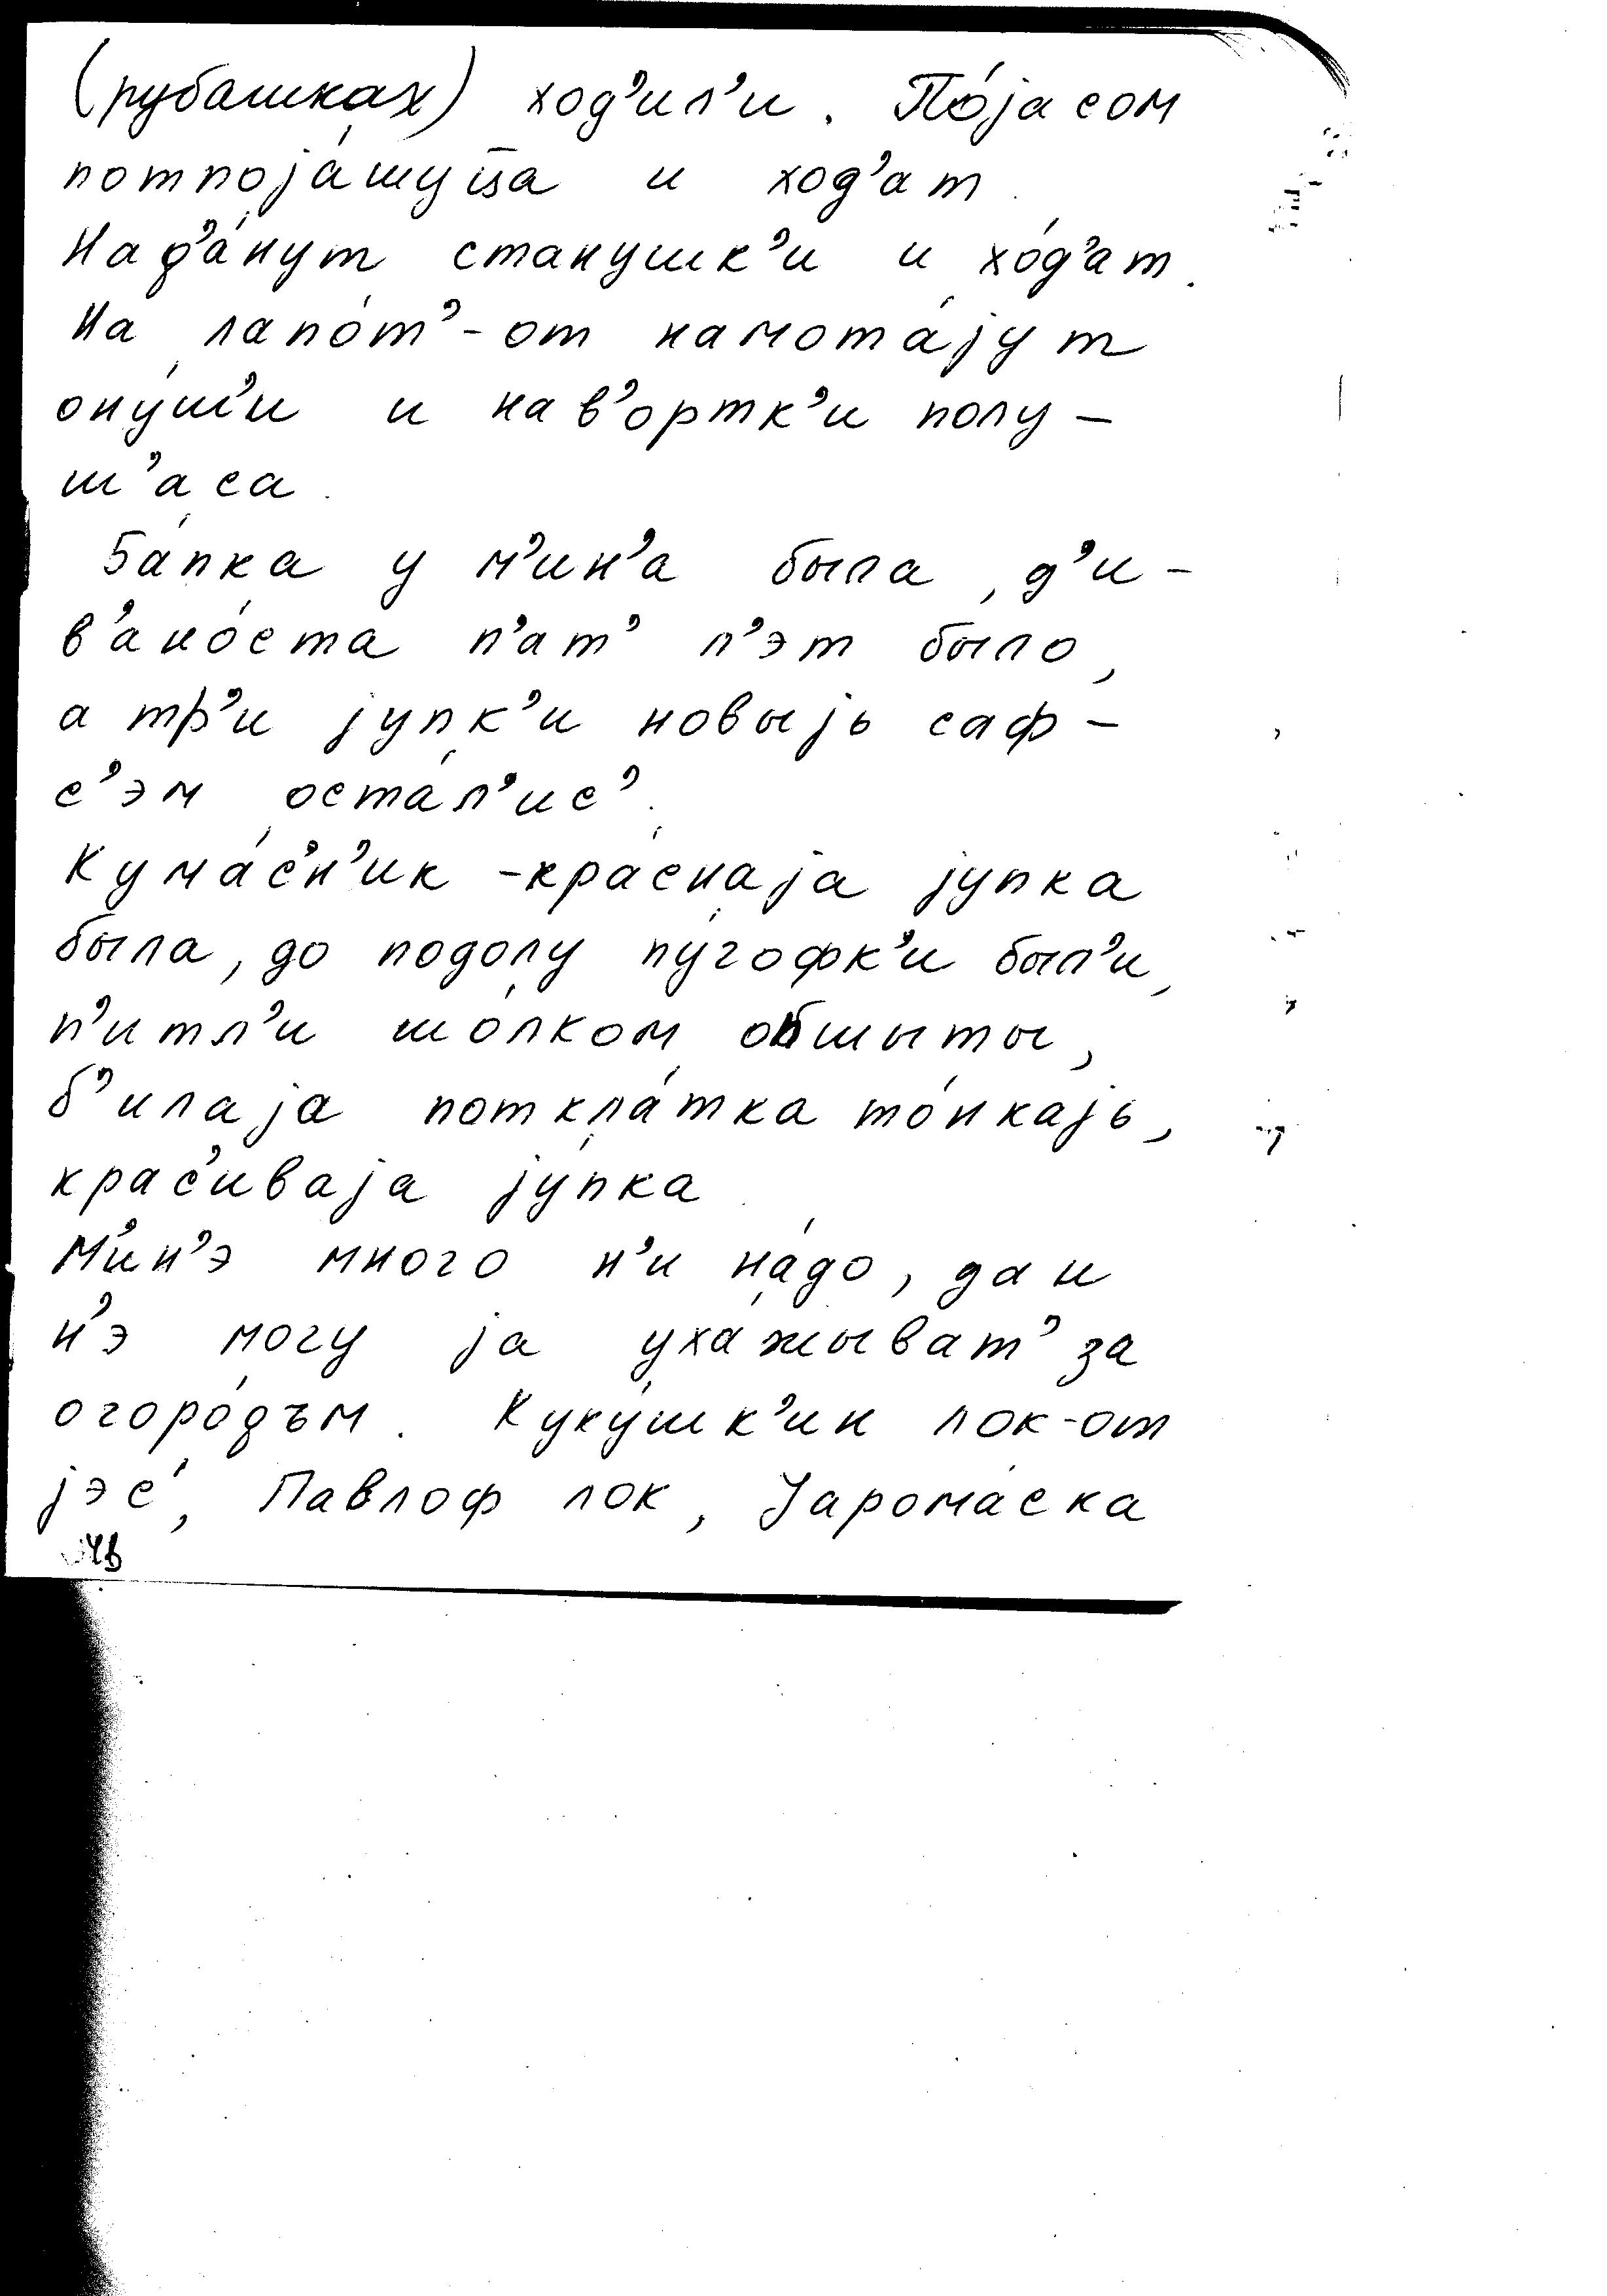 (рубашках) ход’ил’и. По́jасом
потпоjа́шуц̅а и ход’ат.
Над’а́нут станушк’и и хо́д’ат.
На лапо́т’-от намота́jут
ону́ш’и и нав’ортк’и полу-
ш’аса.
Ба́пка у м’ин’а была, д’и-
в’ано́ста п’ат’ л’эт было,
а тр’и jупк’и новыjь саф-
с’эм оста́л’ис’.
Кума́с’н’ик - кра́снаjа jупка
была, до подолу пу́гофк’и был’и,
п’итл’и шо́лком опшыты,
б’илаjа поткла́тка то́нкаjь,
крас’иваjа jу́пка.
М’ин’э много н’и на́до, да и
н’э могу jа уха́жыват’ за
огоро́дъм. Куку́шк’ин лок-от
jэс’, Павлоф лок, Jарома́ска